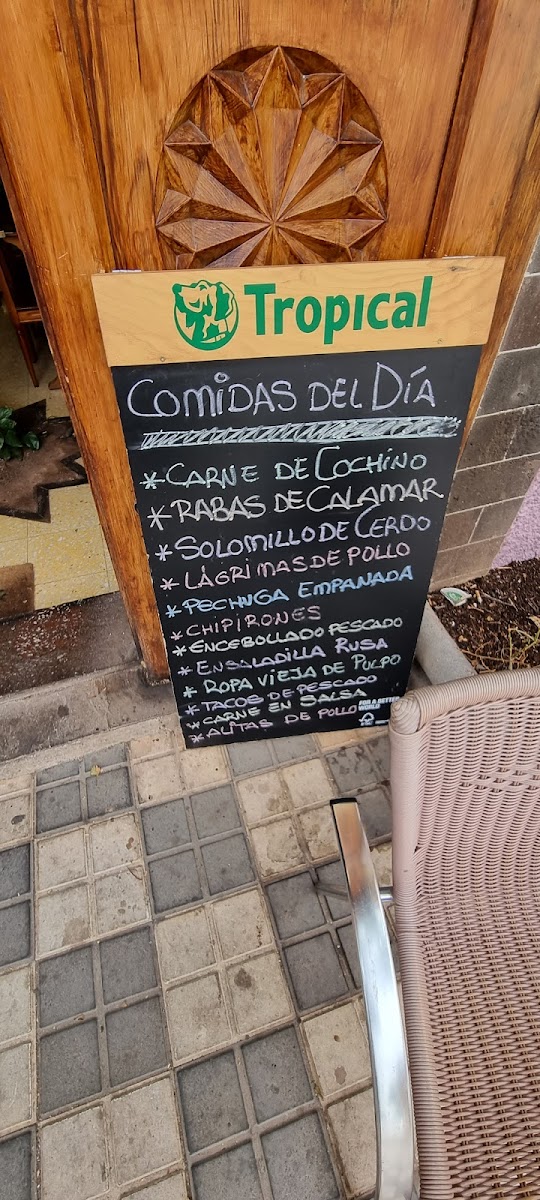 Tropical
COMIDAS DEL DÍA
* CARNE DE COCHINO
* RABAS DE CALAMAR
* SOLOMILLO DE CERDO
* LÁGRIMAS DE POLLO
* PECHUGA EMPANADA
* CHIPIRONES
* ENCEBOLLADO PESCADO
* ENSALADILLA RUSA
* ROPA VIEJA DE PULPO
* TACOS DE PESCADO
* CARNE EN SALSA
* ALITAS DE POLLO
FOR A BETTER
WORLD